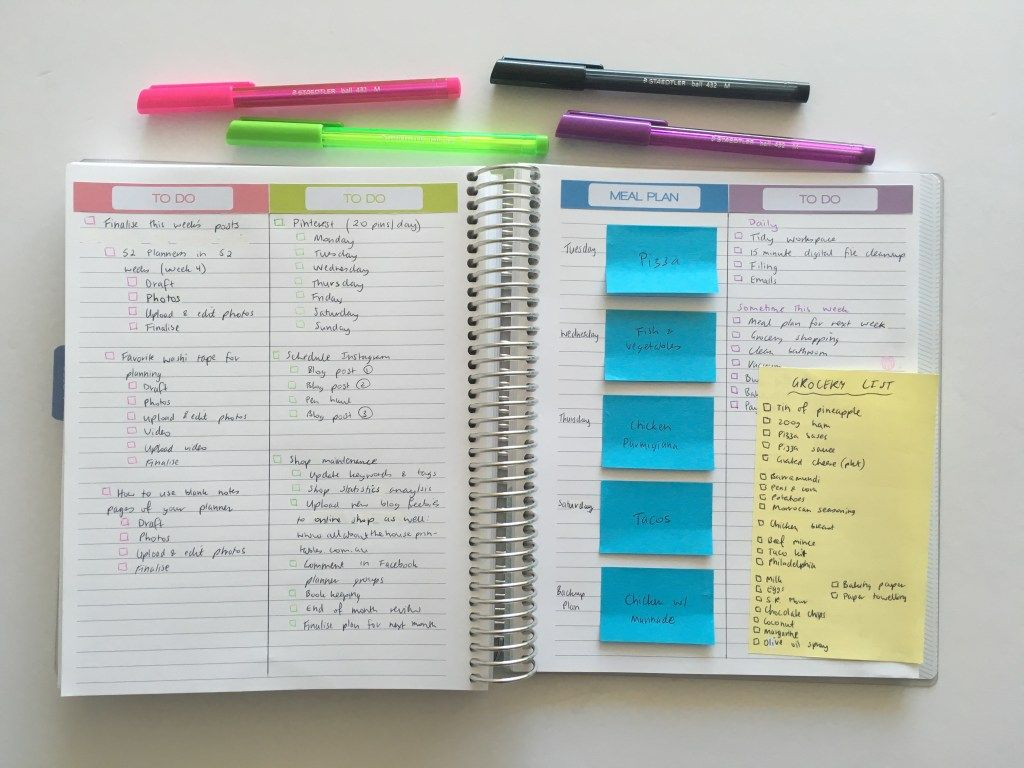 STAEDTLER ball 432 M
STAEDTLER ball 432 M
TO DO
Finalise this week's posts
52 Planners in 52
weeks (week 4)
Draft
Photos
Upload & edit photos
Finalise
Favorite washi tape for
planning
Draft
Photos
Upload & edit photos
Video
Upload video
Finalise
How to use blank notes
pages of your planner
Draft
Photos
Upload & edit photos
Finalise
TO DO
Pinterest (20 pins/day)
Monday
Tuesday
Wednesday
Thursday
Friday
Saturday
Sunday
Schedule Instagram
Blog post 1
Blog post 2
Pen haul
Blog post 3
Shop maintenance
Update keywords & tags
Shop statistics analysis
Upload new blog freebies
to online shop as well
www.allaboutthehouse prin-
tables.com.au
Comment in Facebook
planner groups
Book keeping
End of month review
Finalise plan for next month
MEAL PLAN
Tuesday
Pizza
Wednesday
Fish &
Vegetables
Thursday
Chicken
Parmigiana
Saturday
Tacos
Backup
Plan
Chicken w/
Marinade
TO DO
Daily
Tidy workspace
15 minute digital file cleanup
Filing
Emails
Sometime this week
Meal plan for next week
Grocery shopping
Clean bathroom
GROCERY LIST
Tin of pineapple
200g ham
Pizza bases
Pizza sauce
Grated cheese (pkt)
Barramundi
Peas & corn
Potatoes
Morrocan seasoning
Chicken breast
Beef mince
Taco kit
Philadelphia
Milk
Eggs
S.R flour
Chocolate chips
Coconut
Margarine
Olive oil spray
Baking paper
Paper towelling